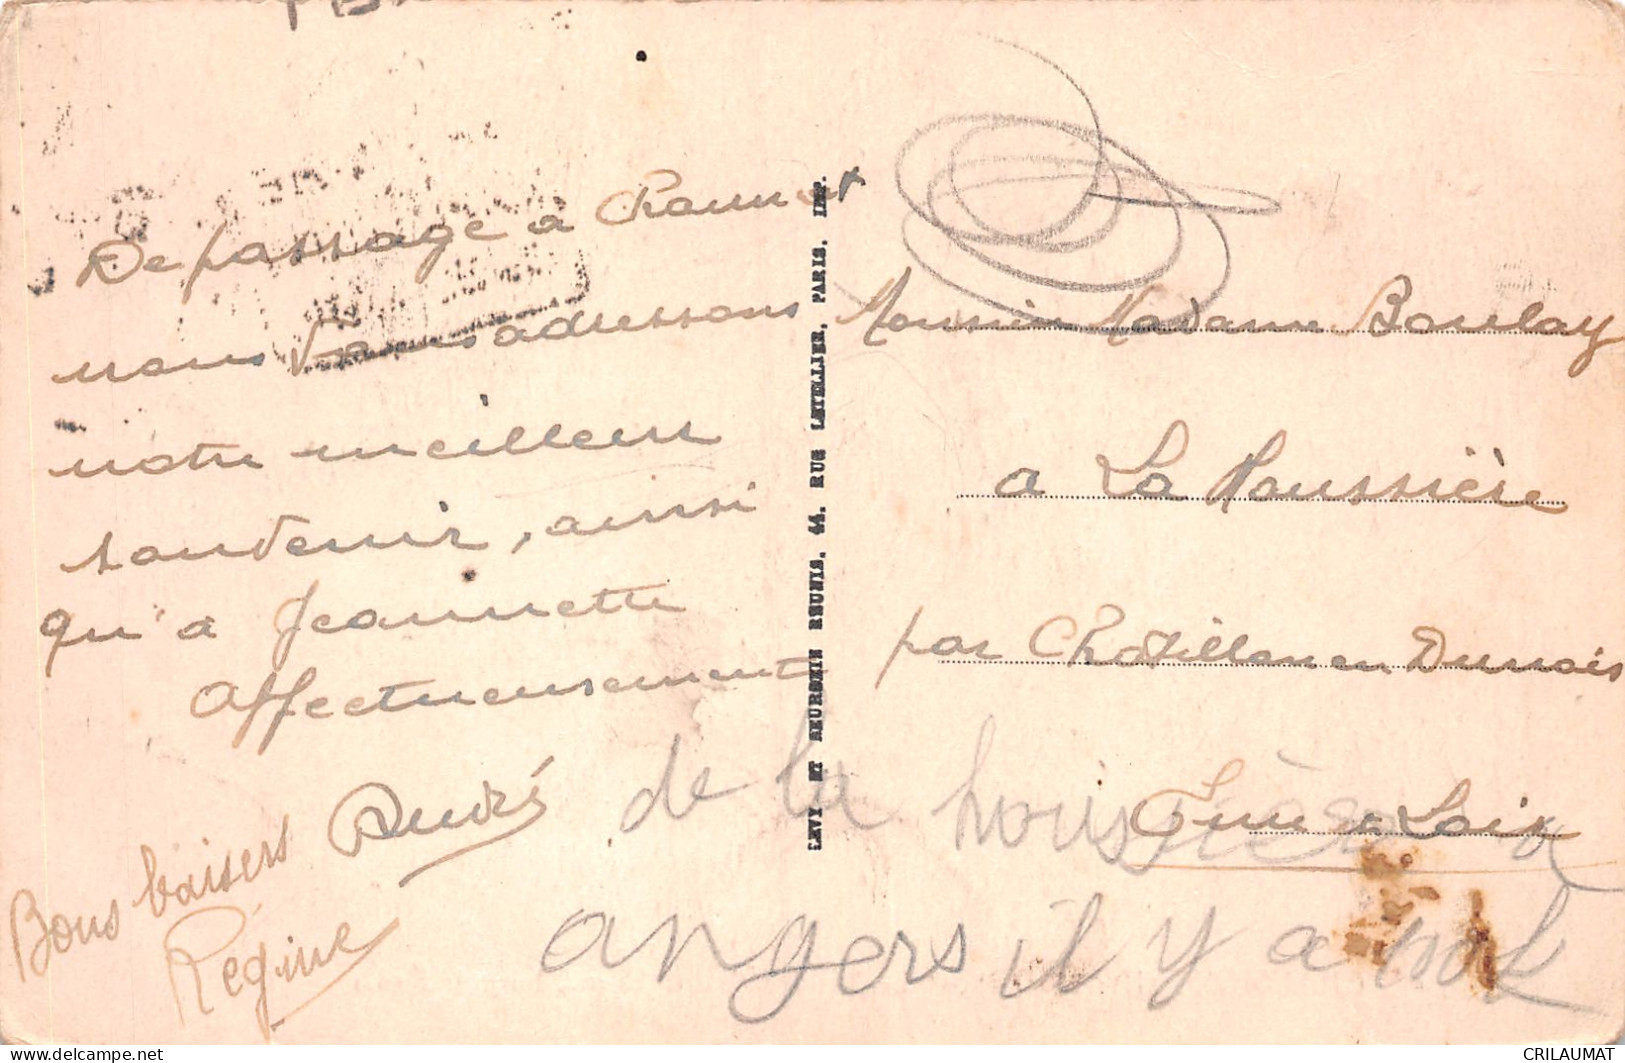 De passage à
nous Vous adressons
notre meilleur
souvenir, ainsi
qu'a Jeannette
Affectueusement
André
Bons baisers
Régine
LEVY ET NEURDEIN RÉUNIS, 44, RUE LETELLIER, PARIS, IMP.
Monsieur Madame Boulay
a La
par Chatillon en Dunois
Eure et Loir
de la
angers il y a
www.delcampe.net
CRILAUMAT